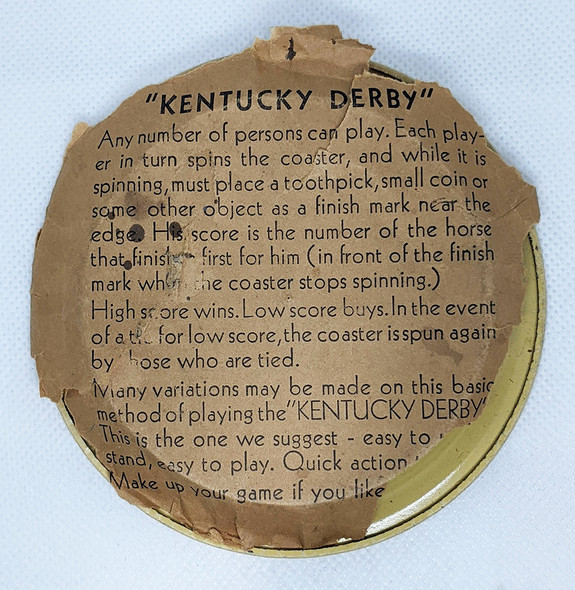 "KENTUCKY DERBY"
Any number of persons can play. Each play-
er in turn spins the coaster, and while it is
spinning, must place a toothpick, small coin or
some other object as a finish mark near the
edge. His score is the number of the horse
that finish first for him (in front of the finish
mark wh he coaster stops spinning.)
High score wins. Low score buys. In the event
of a tie for low score, the coaster is spun again
by hose who are tied.
Many variations may be made on this basic
method of playing the "KENTUCKY DERBY"
This is the one we suggest - easy to
stand, easy to play. Quick action
Make up your game if you like